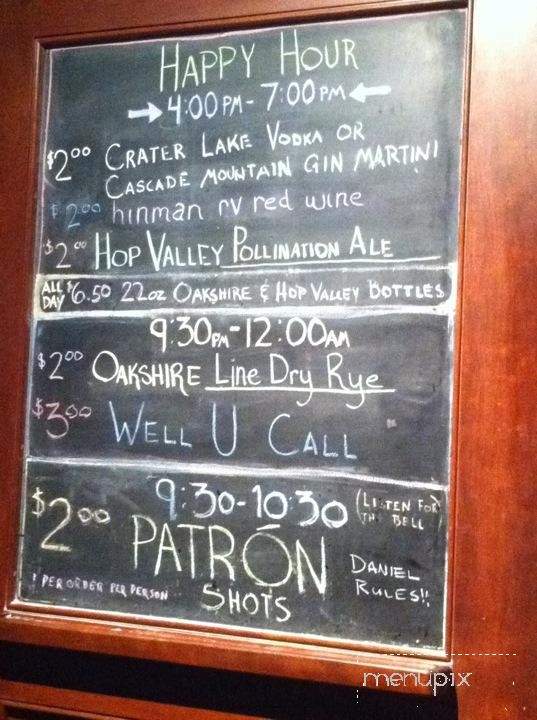 HAPPY HOUR
4:00PM - 7:00PM
$2.00 CRATER LAKE VODKA OR
CASCADE MOUNTAIN GIN MARTINI
$2.00 hinman rv red wine
$2.00 HOP VALLEY POLLINATION ALE
ALL DAY $6.50 22oz OAKSHIRE & HOP VALLEY BOTTLES
9:30PM-12:00AM
$2.00 OAKSHIRE Line Dry Rye
$3.00 WELL U CALL
9:30-10:30 (LISTEN FOR THE BELL)
$2.00 PATRÓN
SHOTS
1 PER ORDER PER PERSON
DANIEL RULES!!
menupix